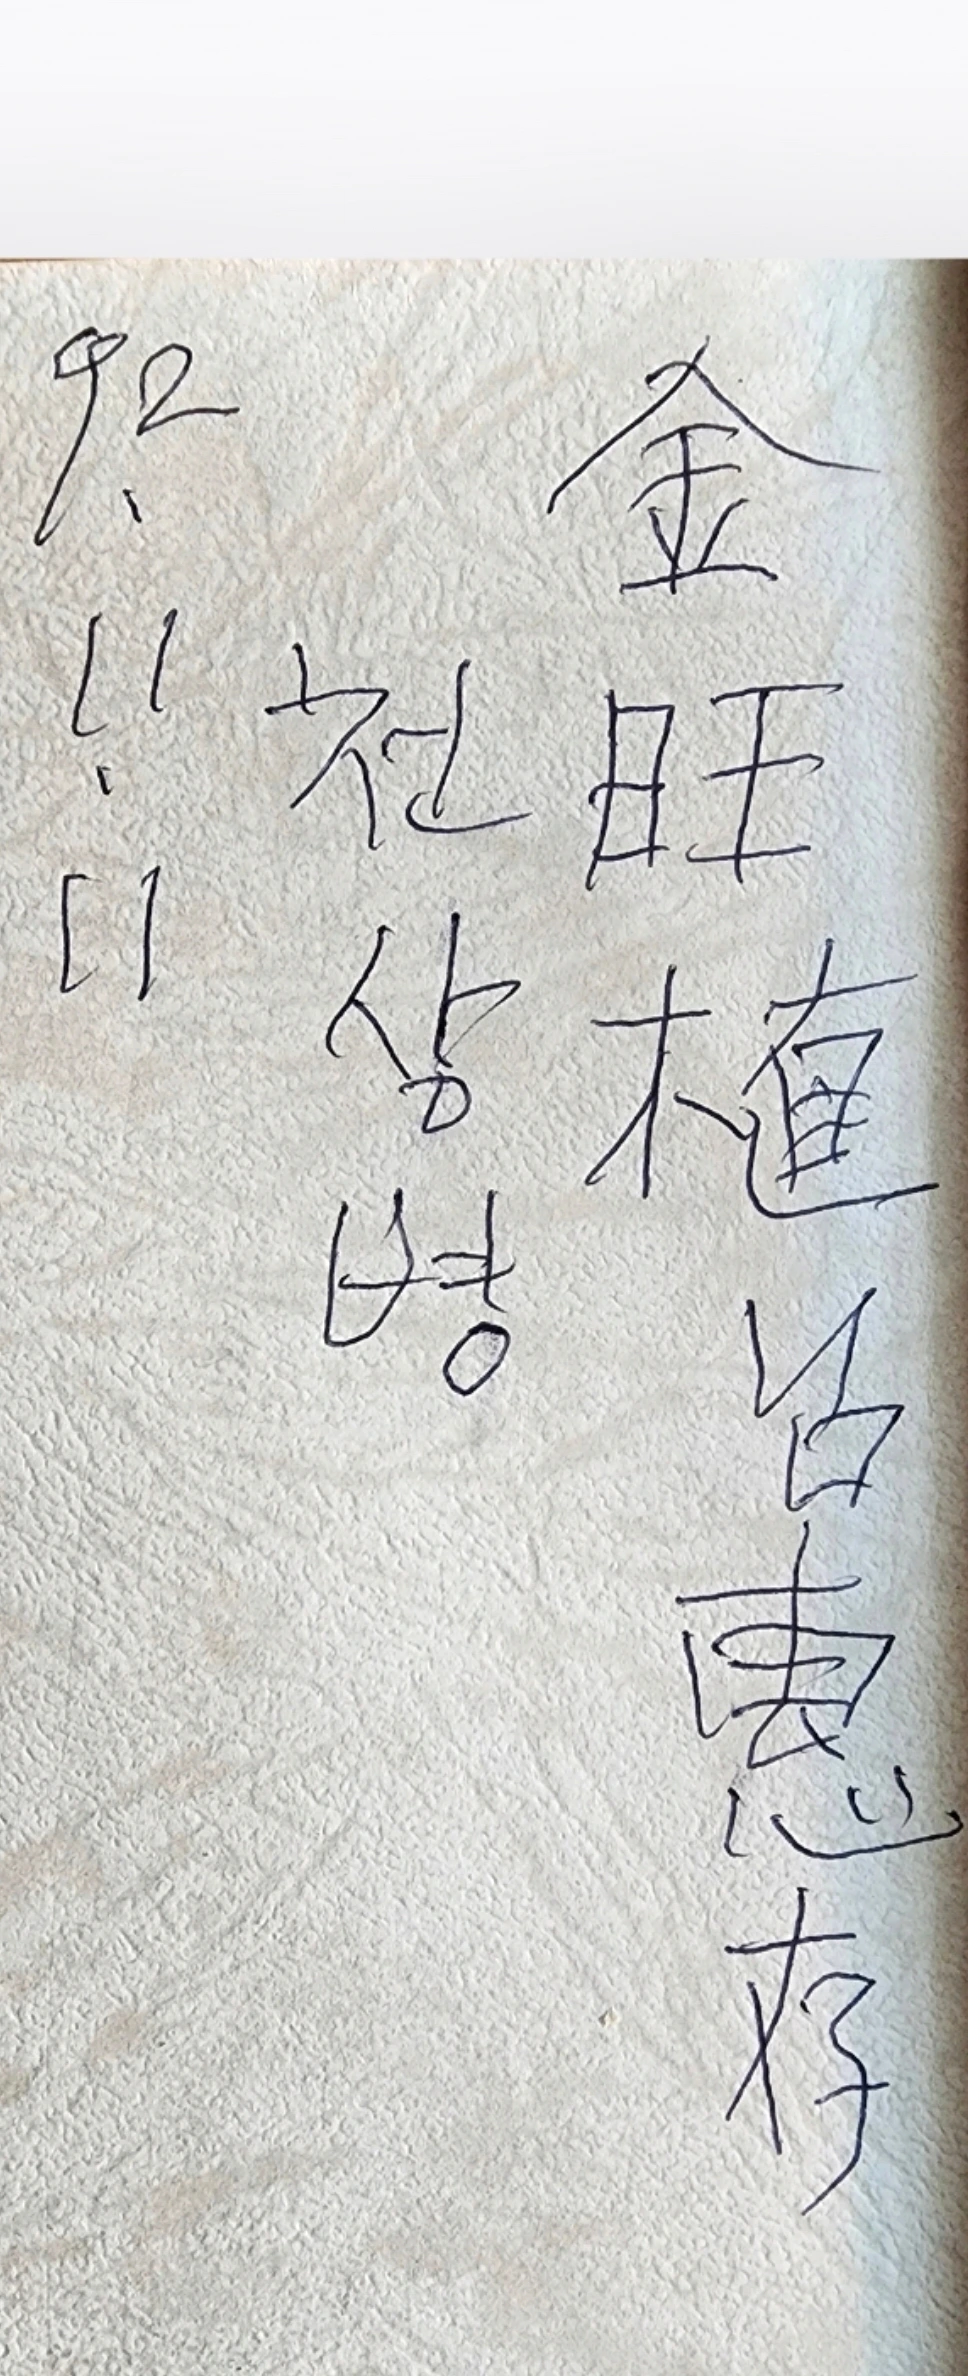 金旺植님惠存
천상병
92. 11. 11